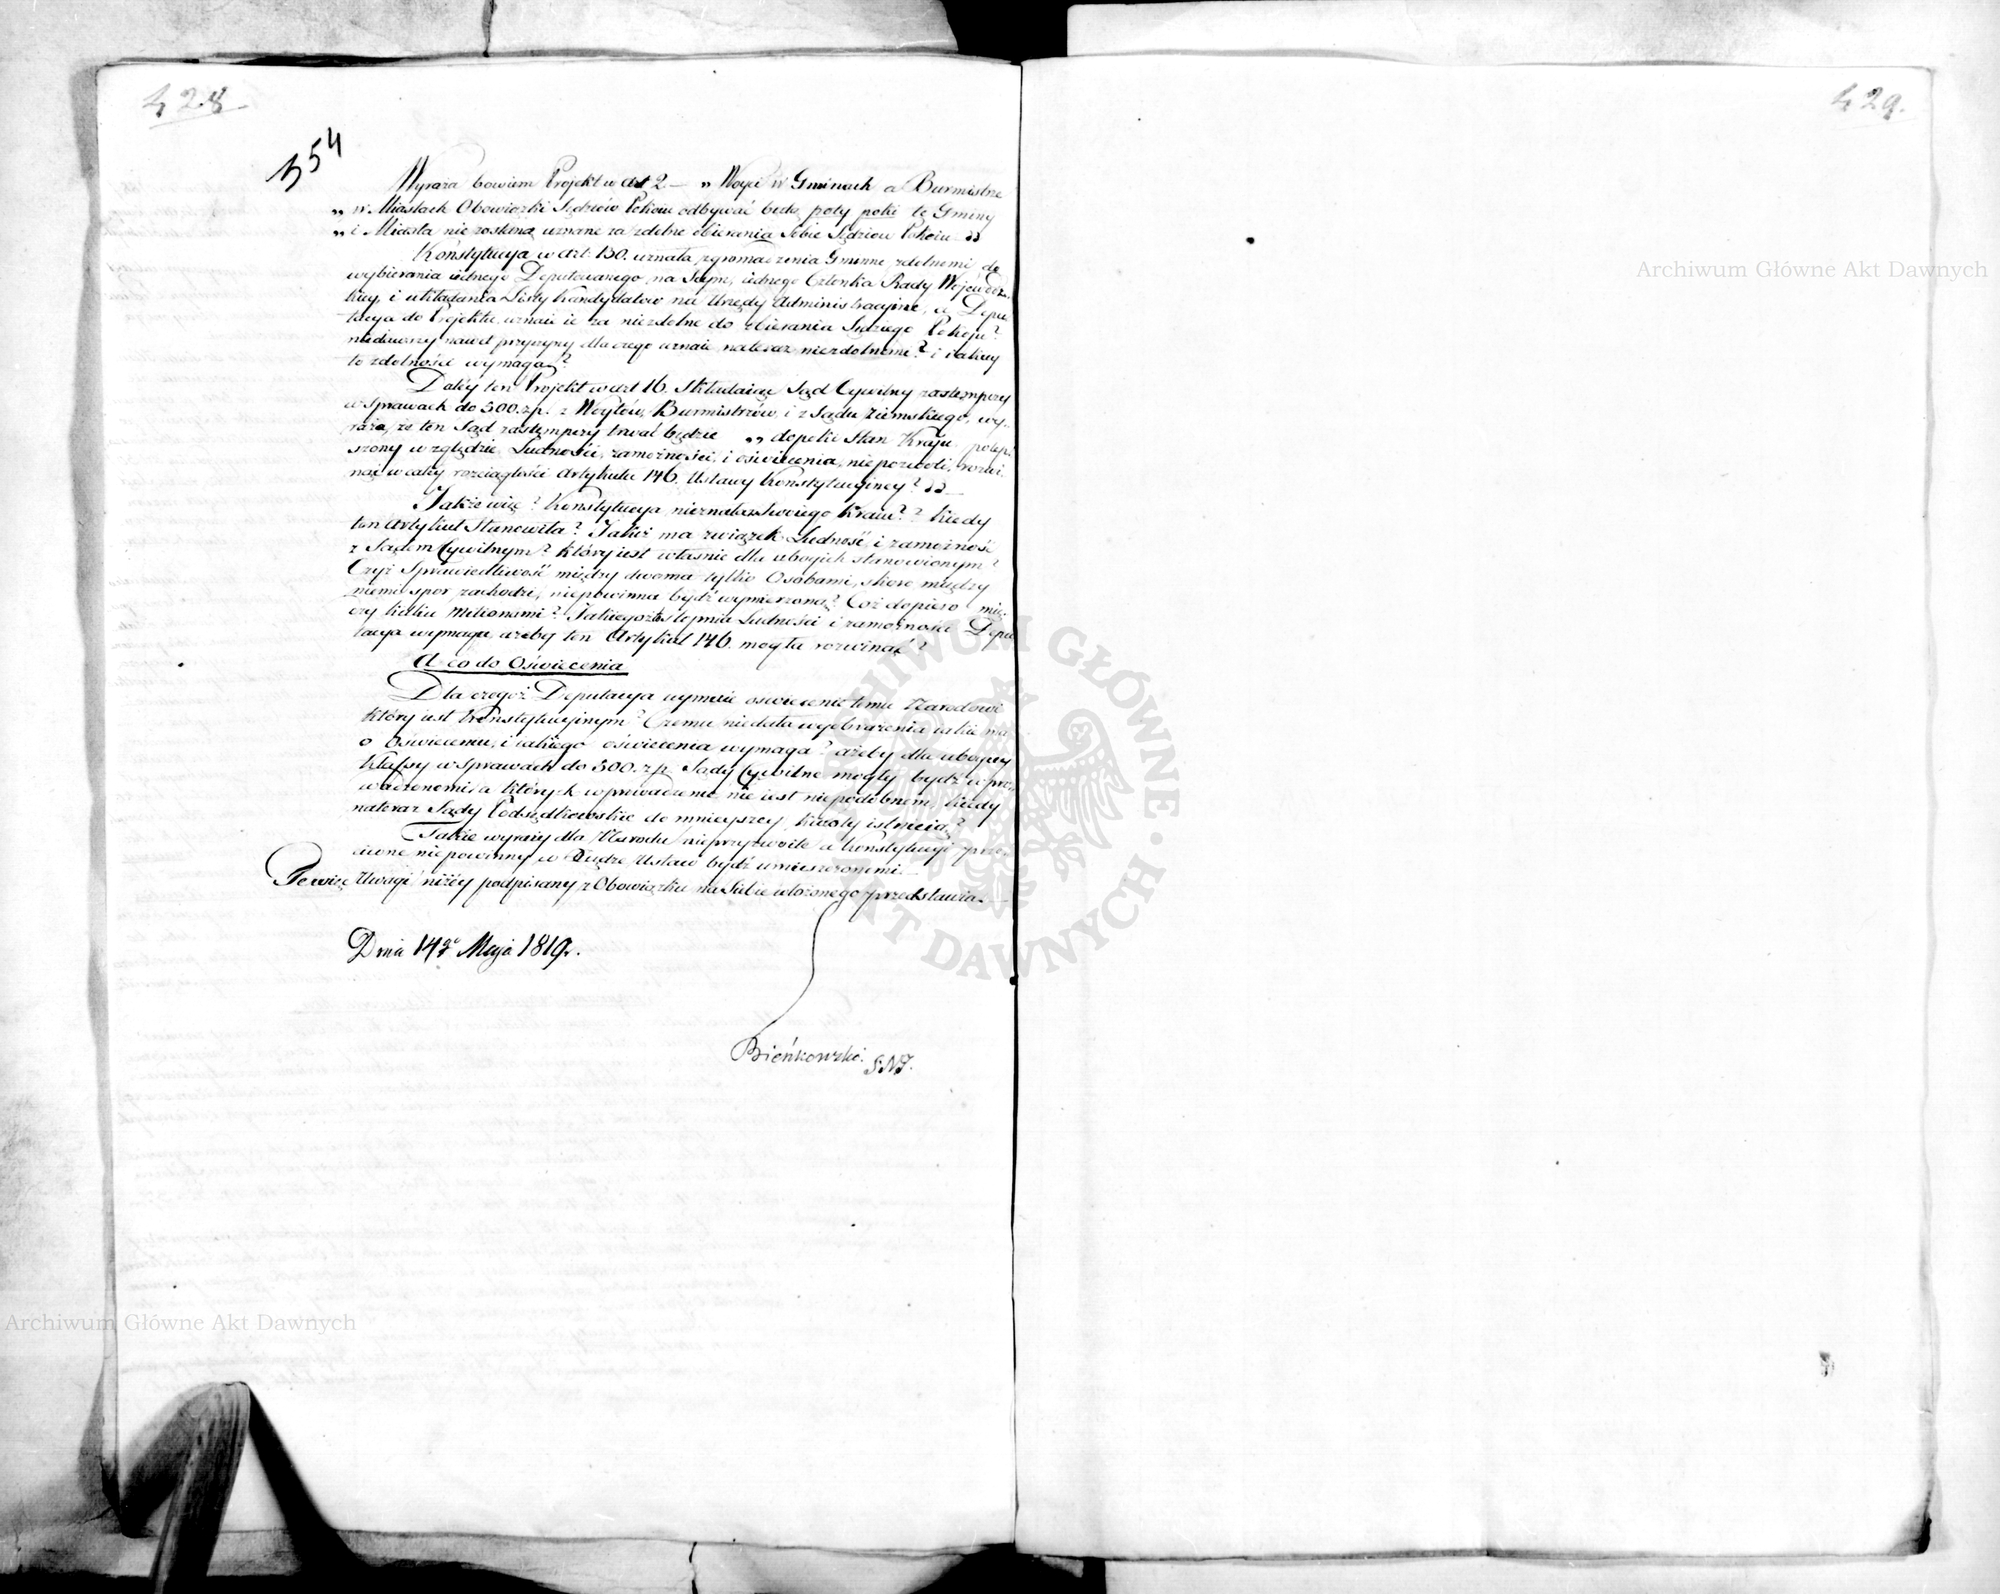 428
354
Wyraża bowiem Projekt w Art 2 — „ Woyci w Gminach a Burmistrze
„ w Miastach Obowiązki Sędziów Pokoiu odbywać będą poty poki te Gminy
„ i Miasta nie zostaną uznane za zdolne obierania Sobie Sędziow Pokoiu „
Konstytucya w Art: 130. uznała zgromadzenia Gminne zdolnemi do
wybierania iednego Deputowanego na Seym, iednego Członka Rady Wojewodz-
kiey, i układania Listy Kandydatow na Urzędy Administracyine, a Depu
tacya do Projektu, uznaie ie za niezdolne do obierania Sędziego Pokoju?
niedawszy nawet przyczyny dla czego uznaie nateraz niezdolnemi? i iakiey
to zdolności wymaga?
Daley ten Projekt w Art 16. Składaiąc Sąd Cywilny zastempczy
w Sprawach do 500. zp. z Woytów, Burmistrzów, i z Sądu Ziemskiego, wy-
raża, że ten Sąd zastempczy trwać będzie „ dopokie Stan Kraju polep
szony względzie Ludności, zamożności, i oświecenia, niepozwoli, rozwi
nąć w całey rozciągłości Artykułu 146. Ustawy Konstytucyiney? „
Jakże więc? Konstytucya nieznała Swoiego Kraiu?? kiedy
ten Artykuł Stanowiła? Jakiż ma związek Ludność i zamożność
z Sądem Cywilnym? który iest właśnie dla ubogich stanowionym?
Czyż Sprawiedliwość między dwoma tylko Osobami, skoro między
niemi spor zachodzi, niepowinna bydź wymierzona? Coż dopiero mię-
dzy kilku Milionami? Jakiegoż stopnia Ludności i zamożności Depu
tacya wymaga, ażeby ten Artykuł 146. mogła rozwinąć?
A co do Oświecenia
Dla czegoż Deputacya uymuie oświecenie temu Narodowi
który iest Konstytucyinym? Czemu niedała wyobrażenia iakie ma
o Oświeceniu, i iakiego oświecenia wymaga? ażeby dla ubogiey
klassy w Sprawach do 500. zp. Sądy Cywilne mogły bydź w pro-
wadzonemi, a których wprowadzenie nie iest niepodobnem, kiedy
nateraz Sądy Podsędkowskie do mnieyszey kwoty istnieią?
Takie wyrazy dla Narodu nieprzyzwoite a Konstytucyi prze-
ciwne niepowinny w Xiędze Ustaw bydź umieszczonemi.
Te więc Uwagi niżey podpisany z Obowiązku na Siebie włożonego przedstawia.
Dnia 14go Maja 1819r.
Bieńkowski.
429.
Archiwum Główne Akt Dawnych
Archiwum Główne Akt Dawnych
ARCHIWUM GŁÓWNE AKT DAWNYCH